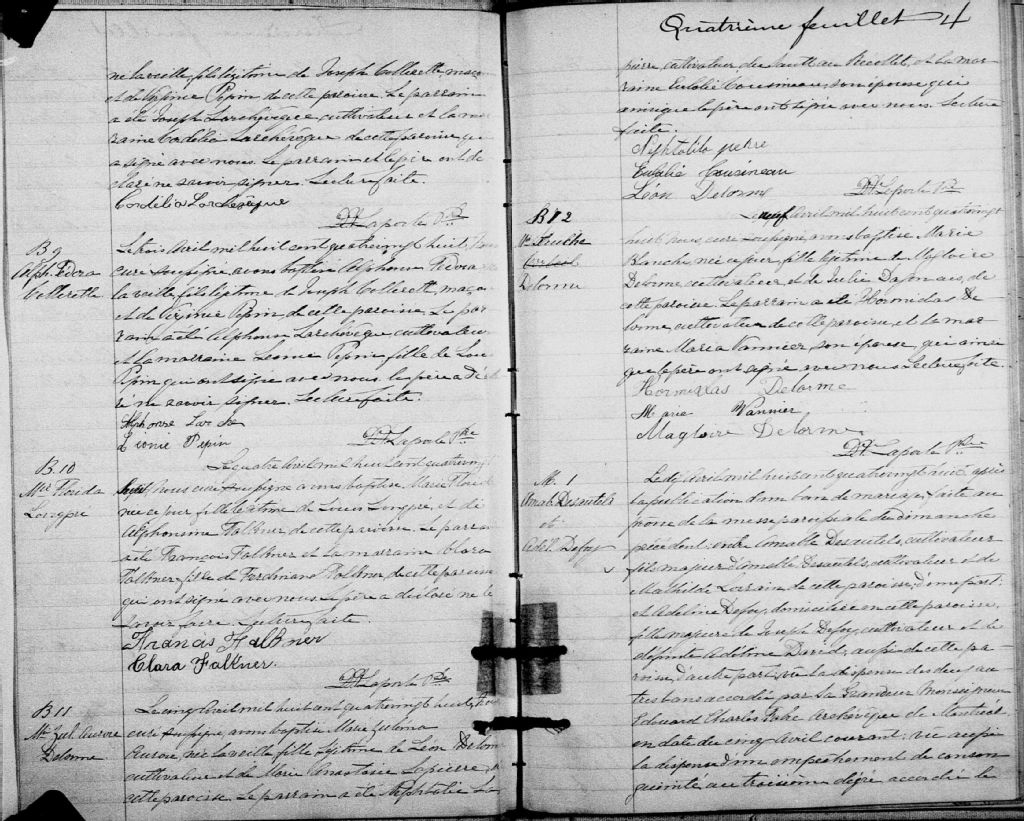 né la veille, fils légitime de Joseph Collerette, maçon
et de Virginie Pepin de cette paroisse. Le parrain
a été Joseph Larchevêque cultivateur et la mar-
raine Cordélia Larchevêque de cette paroisse qui
a signé avec nous. Le parrain et le père ont dé
claré ne savoir signer. Lecture faite.
Cordélia Larchevêque
Laporte Ptre
B 9
Alph. Fedora
Collerette
Le trois Avril mil huit cent quatrevingt huit, Nous
curé soussigné avons baptisé Alphonse Fedora
la veille fils légitime de Joseph Collerette, maçon
et de Virginie Pepin de cette paroisse. Le par
rain a été Alphonse Larchevêque cultivateur
et la marraine Leonie Pepin fille de Lou
Pepin qui ont signé avec nous. le père a décla
ré ne savoir signer. Lecture faite.
Alphonse Lar
Léonie Pépin
Laporte Ptre
B. 10
Mie Florida
Longpré
Le quatre Avril mil huit cent quatrevingt
huit, nous curé soussigné avons baptisé Marie Florida
née ce jour fille légitime de Louis Longpré, et de
Alphonsine Falkner de cette paroisse. Le parrain
a été François Falkner et la marraine Clara
Falkner, fille de Ferdinand Falkner, de cette paroisse
qui ont signé avec nous. Le père a déclaré ne le
savoir faire. Lecture faite.
Francis Falkner
Clara Falkner.
Laporte Ptre
B 11
Mie Zul. Aurore
Delorme
Le cinq Avril mil huit cent quatrevingt huit, Nous
curé soussigné, avons baptisé Marie Zuléma
Aurore, née la veille fille légitime de Léon Delorme
cultivateur et de Marie Anastasie Lapierre, de
cette paroisse. Le parrain a été Nephtalie La
Quatrième feuillet 4
pierre, cultivateur du Sault au Récollet, et la mar-
raine Eulalie Cousineau, son épouse qui
ainsi que le père ont signé avec nous. Lecture
faite.
Nephtalie pierre
Eulalie Cousineau
Léon Delorme
Laporte Ptre
B 12
Mie Blanche
Delorme
Le neuf Avril mil huit cent quatrevingt
huit Nous, curé soussigné, avons baptisé Marie
Blanche, née ce jour, fille légitime de Magloire
Delorme, cultivateur et de Julie Dagenais, de
cette paroisse. Le parrain a été Hormidas De
lorme, cultivateur de cette paroisse, et la mar-
raine Maria Vannier, son épouse, qui ainsi
que le père ont signé avec nous Lecture faite.
Hormidas Delorme
Marie Vannier
Magloire Delorme
Laporte Ptre
M. 1
Amable Desautels
et
Adél. Defoy
Le dix Avril mil huit cent quatrevingt huit, après
la publication d'un ban de mariage, faite au
prône de la messe paroissiale du dimanche
précédent, entre Amable Desautels, cultivateur
fils majeur d'Amable Desautels, cultivateur et de
Mathilde Lorrain de cette paroisse, d'une part:
et Adéline Defoy, domiciliée en cette paroisse,
fille majeure de Joseph Defoy, cultivateur et de
défunte Adéline David, aussi de cette pa-
roisse, d'autre part; vu la dispense des deux au
tres bans accordée par Sa Grandeur Monseigneur
Edouard Charles Fabre Archevêque de Montréal
en date du cinq Avril courant; vu aussi
la dispense d'un empêchement de consan
guinité au troisième dégré accordée le